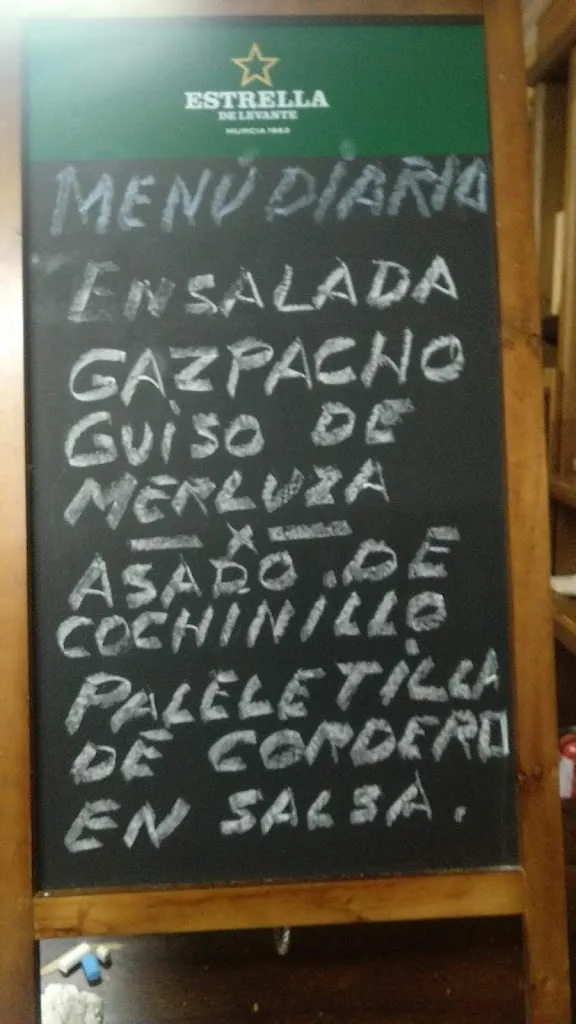 ESTRELLA
DE LEVANTE
MURCIA 1963
MENÚ DIARIO
ENSALADA
GAZPACHO
GUISO DE
MERLUZA
— x —
ASADO .DE
COCHINILLO
PALELETILLA
DE CORDERO
EN SALSA.